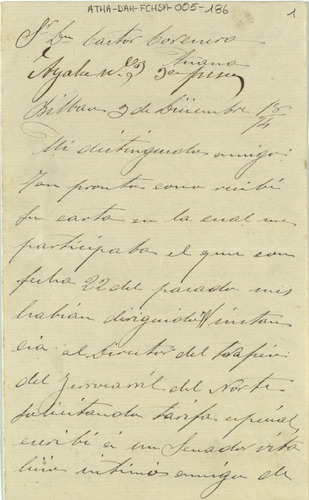 ATHA-DAH-FCHSA-005-186
1
Sr Dn Castor
Ayala nº
Bilbao 3 de Diciembre
Mi distinguido amigo:
Tan pronto como recibí
su carta en la cual me
participaba el que con
fecha 22 del pasado mes
habian dirigido instan
cia al Director del
del Ferrocarril del Norte
solicitando tarifa especial,
escribí á un Senador vita
licio intimo amigo de